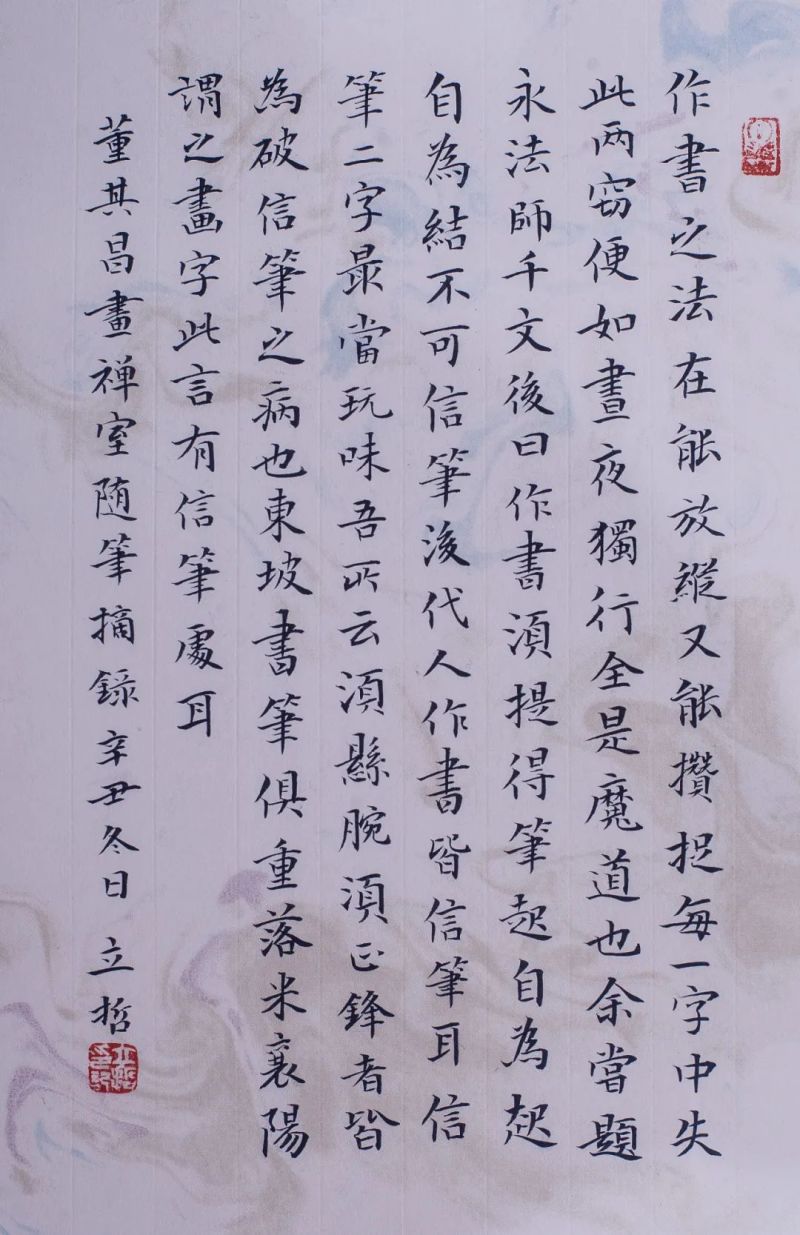 作書之法在能放縱又能攢捉每一字中失
此兩窈便如晝夜獨行全是魔道也余嘗題
永法師千文後曰作書須提得筆起自為起
自為結不可信筆後代人作書皆信筆耳信
筆二字最當玩味吾所云須懸腕須正鋒者皆
為破信筆之病也東坡書筆俱重落米襄陽
謂之畫字此言有信筆處耳
董其昌畫禪室随筆摘錄辛丑冬日 立哲